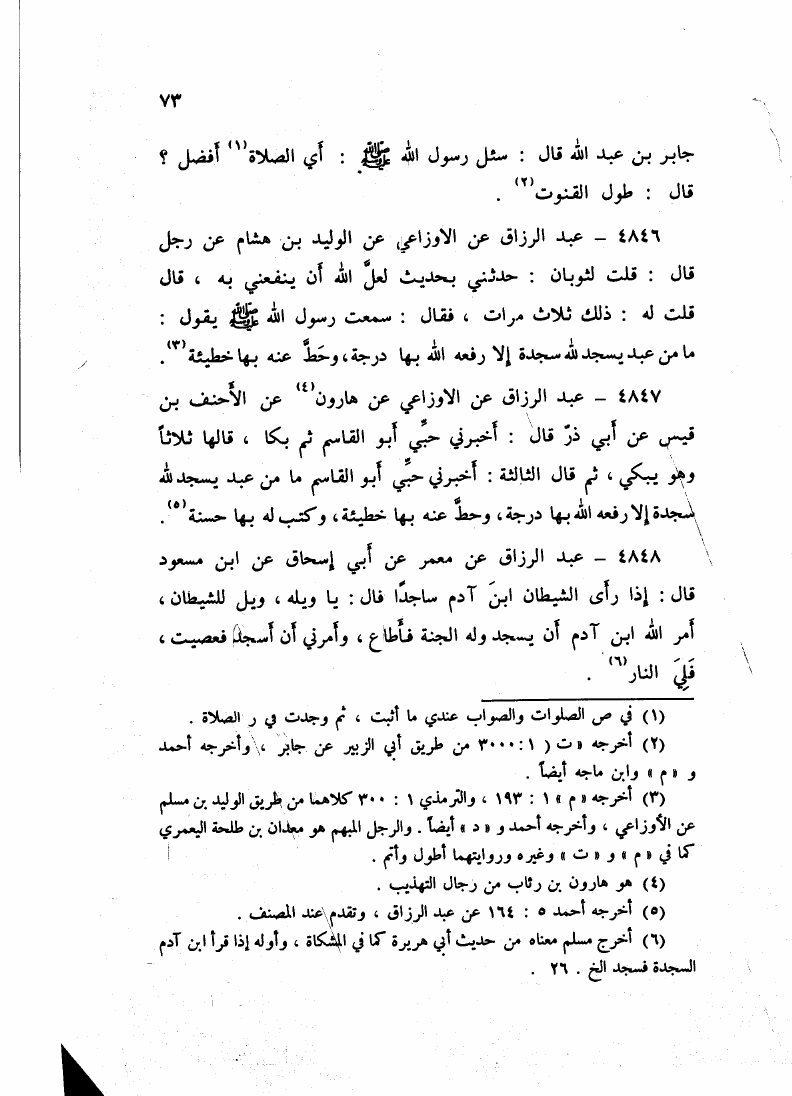 ٧٣
جابر بن عبد الله قال : سئل رسول الله ﷺ : أي الصلاة(١) أفضل ؟
قال : طول القنوت(٢) .
٤٨٤٦ – عبد الرزاق عن الاوزاعي عن الوليد بن هشام عن رجل
قال : قلت لثوبان : حدثني بحديث لعلَّ الله أن ينفعني به ، قال
قلت له : ذلك ثلاث مرات ، فقال : سمعت رسول الله ﷺ يقول :
ما من عبد يسجد لله سجدة إلا رفعه الله بها درجة، وحَطَّ عنه بها خطيئة(٣).
٤٨٤٧ – عبد الرزاق عن الاوزاعي عن هارون(٤) عن الأحنف بن
قيس عن أبي ذرّ قال : أخبرني حبِّي أبو القاسم ثم بكا ، قالها ثلاثاً
وهو يبكي ، ثم قال الثالثة : أخبرني حبِّي أبو القاسم ما من عبد يسجد لله
سجدة إلا رفعه الله بها درجة، وحطَّ عنه بها خطيئة، وكتب له بها حسنة(٥).
٤٨٤٨ – عبد الرزاق عن معمر عن أبي إسحاق عن ابن مسعود
قال : إذا رأى الشيطان ابنَ آدم ساجدًا قال : يا ويله ، ويل للشيطان ،
أمر الله ابن آدم أن يسجد وله الجنة فأطاع ، وأمرني أن أسجد فعصيت ،
فَلِيَ النار(٦) .
(١) في ص الصلوات والصواب عندي ما أثبت ، ثم وجدت في ر الصلاة .
(٢) أخرجه « ت ( ١ : ٣٠٠ من طريق أبي الزبير عن جابر ، وأخرجه أحمد
و « م » وابن ماجه أيضاً .
(٣) أخرجه « م » ١ : ١٩٣ ، والترمذي ١ : ٣٠٠ كلاهما من طريق الوليد بن مسلم
عن الأوزاعي ، وأخرجه أحمد و « د » أيضاً . والرجل المبهم هو معدان بن طلحة اليعمري
كما في « م » و « ت » وغيره وروايتهما أطول وأتم .
(٤) هو هارون بن رئاب من رجال التهذيب .
(٥) أخرجه أحمد ٥ : ١٦٤ عن عبد الرزاق ، وتقدم عند المصنف .
(٦) أخرج مسلم معناه من حديث أبي هريرة كما في المشكاة ، وأوله إذا قرأ ابن آدم
السجدة فسجد الخ . ٢٦ .